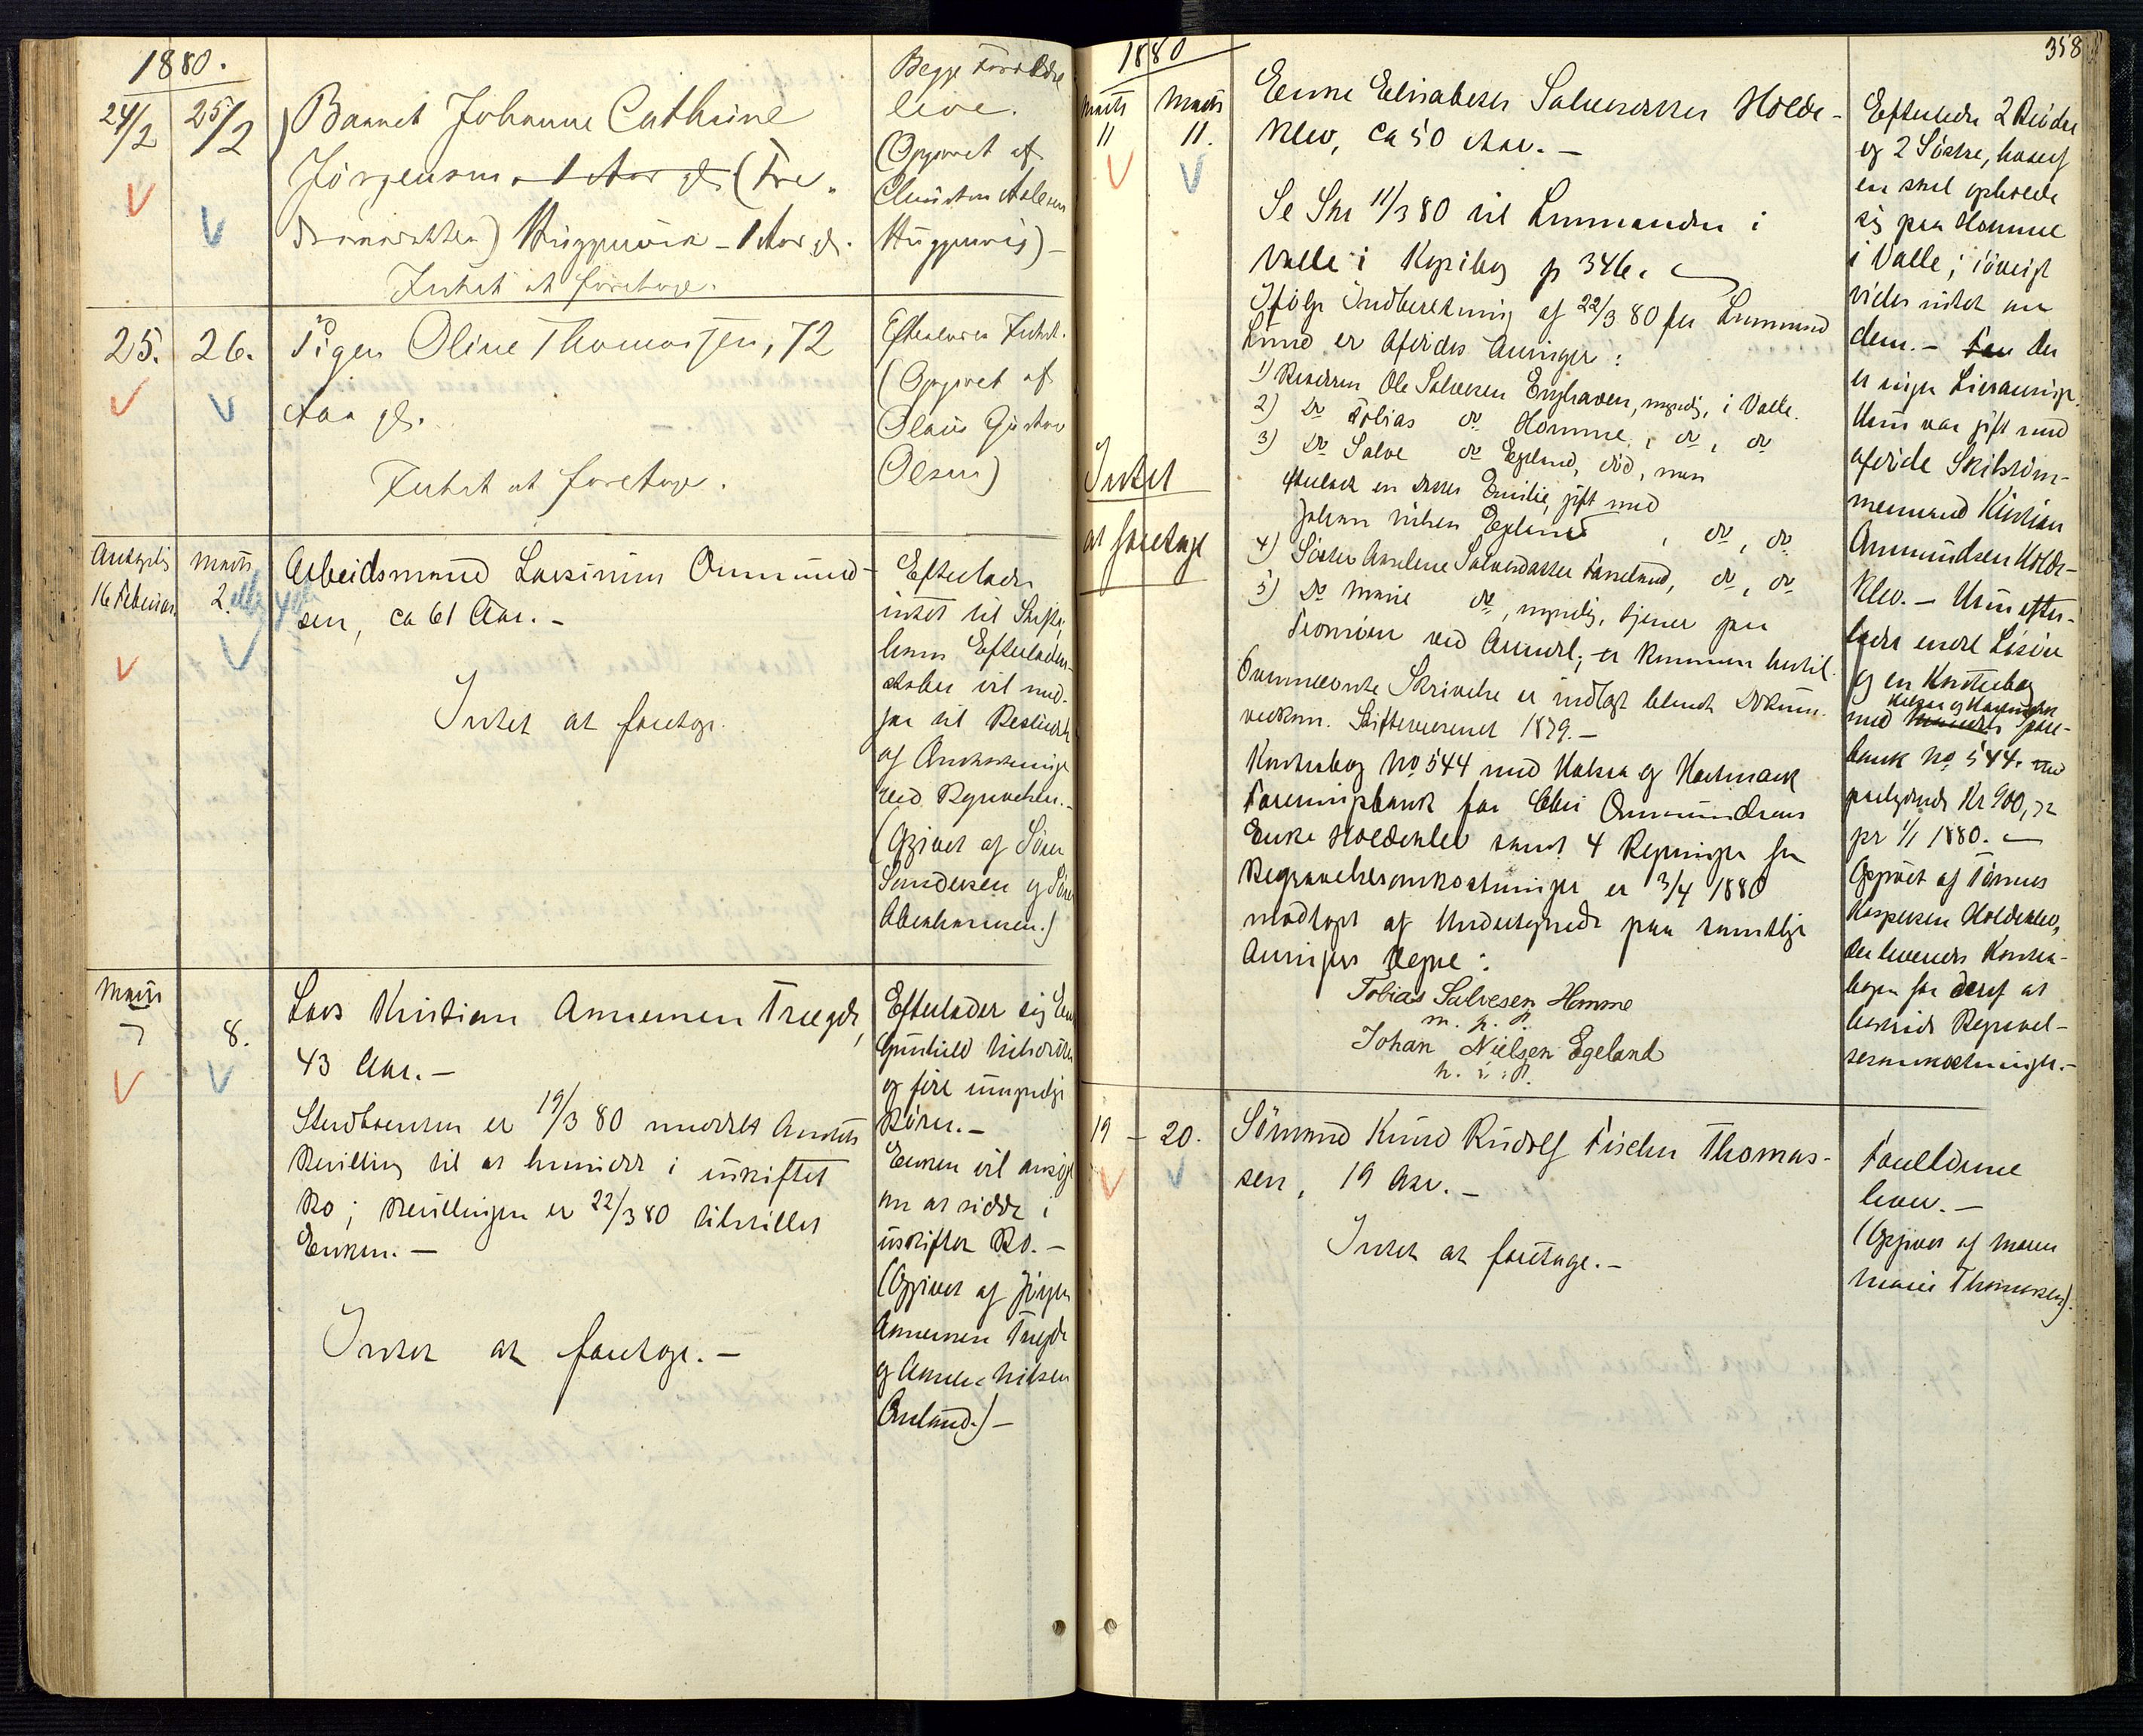 1880.
24/2 25/2
Barnet Johanne Cathrine
Jörgensen, 1 Aar gl. (Fre-
driksdatter) Skuggevik - 1 Aar gl.
Intet at foretage.
Begge Forældre
leve.
(Opgivet af
Christen Aslesen
Skuggevig) -
25. 26.
Pigen Oline Thomassen, 72
Aar gl.
Intet at foretage.
Efterlader Intet.
(Opgivet af
Olaus Gustav
Olsen)
Antagelig Marts
16 Februar 2.
Arbeidsmand Larsinius Ommund-
sen, ca 61 Aar. -
Intet at foretage.
Efterlader
intet til Skifte,
hans Efterladen-
skaber vil med-
gaa til Bestridelse
af Omkostninger
ved Begravelsen. -
(Opgivet af Sören
Gundersen og Sören
Abrahamsen.)
Marts
7 8.
Lars Kristian Annensen Trægde,
43 Aar. -
Stervboenken er 19/3 80 meddelt Amtets
Bevilling til at hensidde i uskiftet
Bo; Bevillingen er 22/3 80 tilstillet
Enken. -
Intet at foretage. -
Efterlader sig Enke
Gunhild Nilsdatter
og fire umyndige
Börn. -
Enken vil ansöge
om at sidde i
uskiftet Bo. -
(Opgivet af Jörgen
Annensen Trægde
og Nilsen
.) -
1880
358
Marts Marts
11 11.
Intet
at foretage
Enke Elisabeth Salvesdatter Holde-
klev, ca 50 Aar. -
Se Skr 11/3 80 til Lensmanden i
Valle i Kopibog p 346.
Ifölge Indberetning af 22/3 80 fra Lensmand
Lund er Afdödes Arvinger:
1) Broderen Ole Salvesen Enghaven, myndig, i Valle.
2) Do Tobias do Homme, do, do
3) Do Salve do Egeland, död, men
efterladt en Datter Emilie, gift med
Johan Nilsen Egeland, do, do
4) Söster Anselene Salvesdatter Fasseland, do, do
5) Do Marie do, myndig, tjener paa
Tromöen ved Arendal; er kommen hertil.
Ovennævnte Skrivelse er indlagt blandt Dokum.
vedkom. Skiftevæsenet 1879. -
Kontrabog No 544 med Halsaa og Hartmark
Sparebank for Chri Ommundsens
Enke Holdeklev samt 4 Regninger for
Begravelsesomkostninger er 3/4 1880
modtaget af Undertegnede paa samtlige
Arvingers Vegne:
Tobias Salvesen Homme
m. p. P.
Johan Nielsen Egeland
Efterlader 2 Brödre
og 2 Söstre, hvoraf
en skal opholde
sig paa Homme
i Valle; iövrigt
vides intet om
dem. - Der
er ingen Livsarving.
Hun var gift med
afdöde Skibstöm-
mermand Kristian
Ommundsen Holde-
klev. - Hun efter-
lader endel Lösöre
og en Kontrabog
Halsaa og Hartmarks
med Spare-
bank No 544.
paalydende Kr 900,72
pr 1/1 1880.
Opgivet af Tönnes
Kaspersen Holdeklev,
der leverer Kontra-
bogen for deraf at
bestride Begravel-
sesomkostninger. -
19 - 20.
Sömand Knud Rudolf Fischer Thomas-
sen, 19 Aar. -
Intet at foretage. -
Forældrene
lever. -
(Opgivet af Maren
Marie Thomassen).